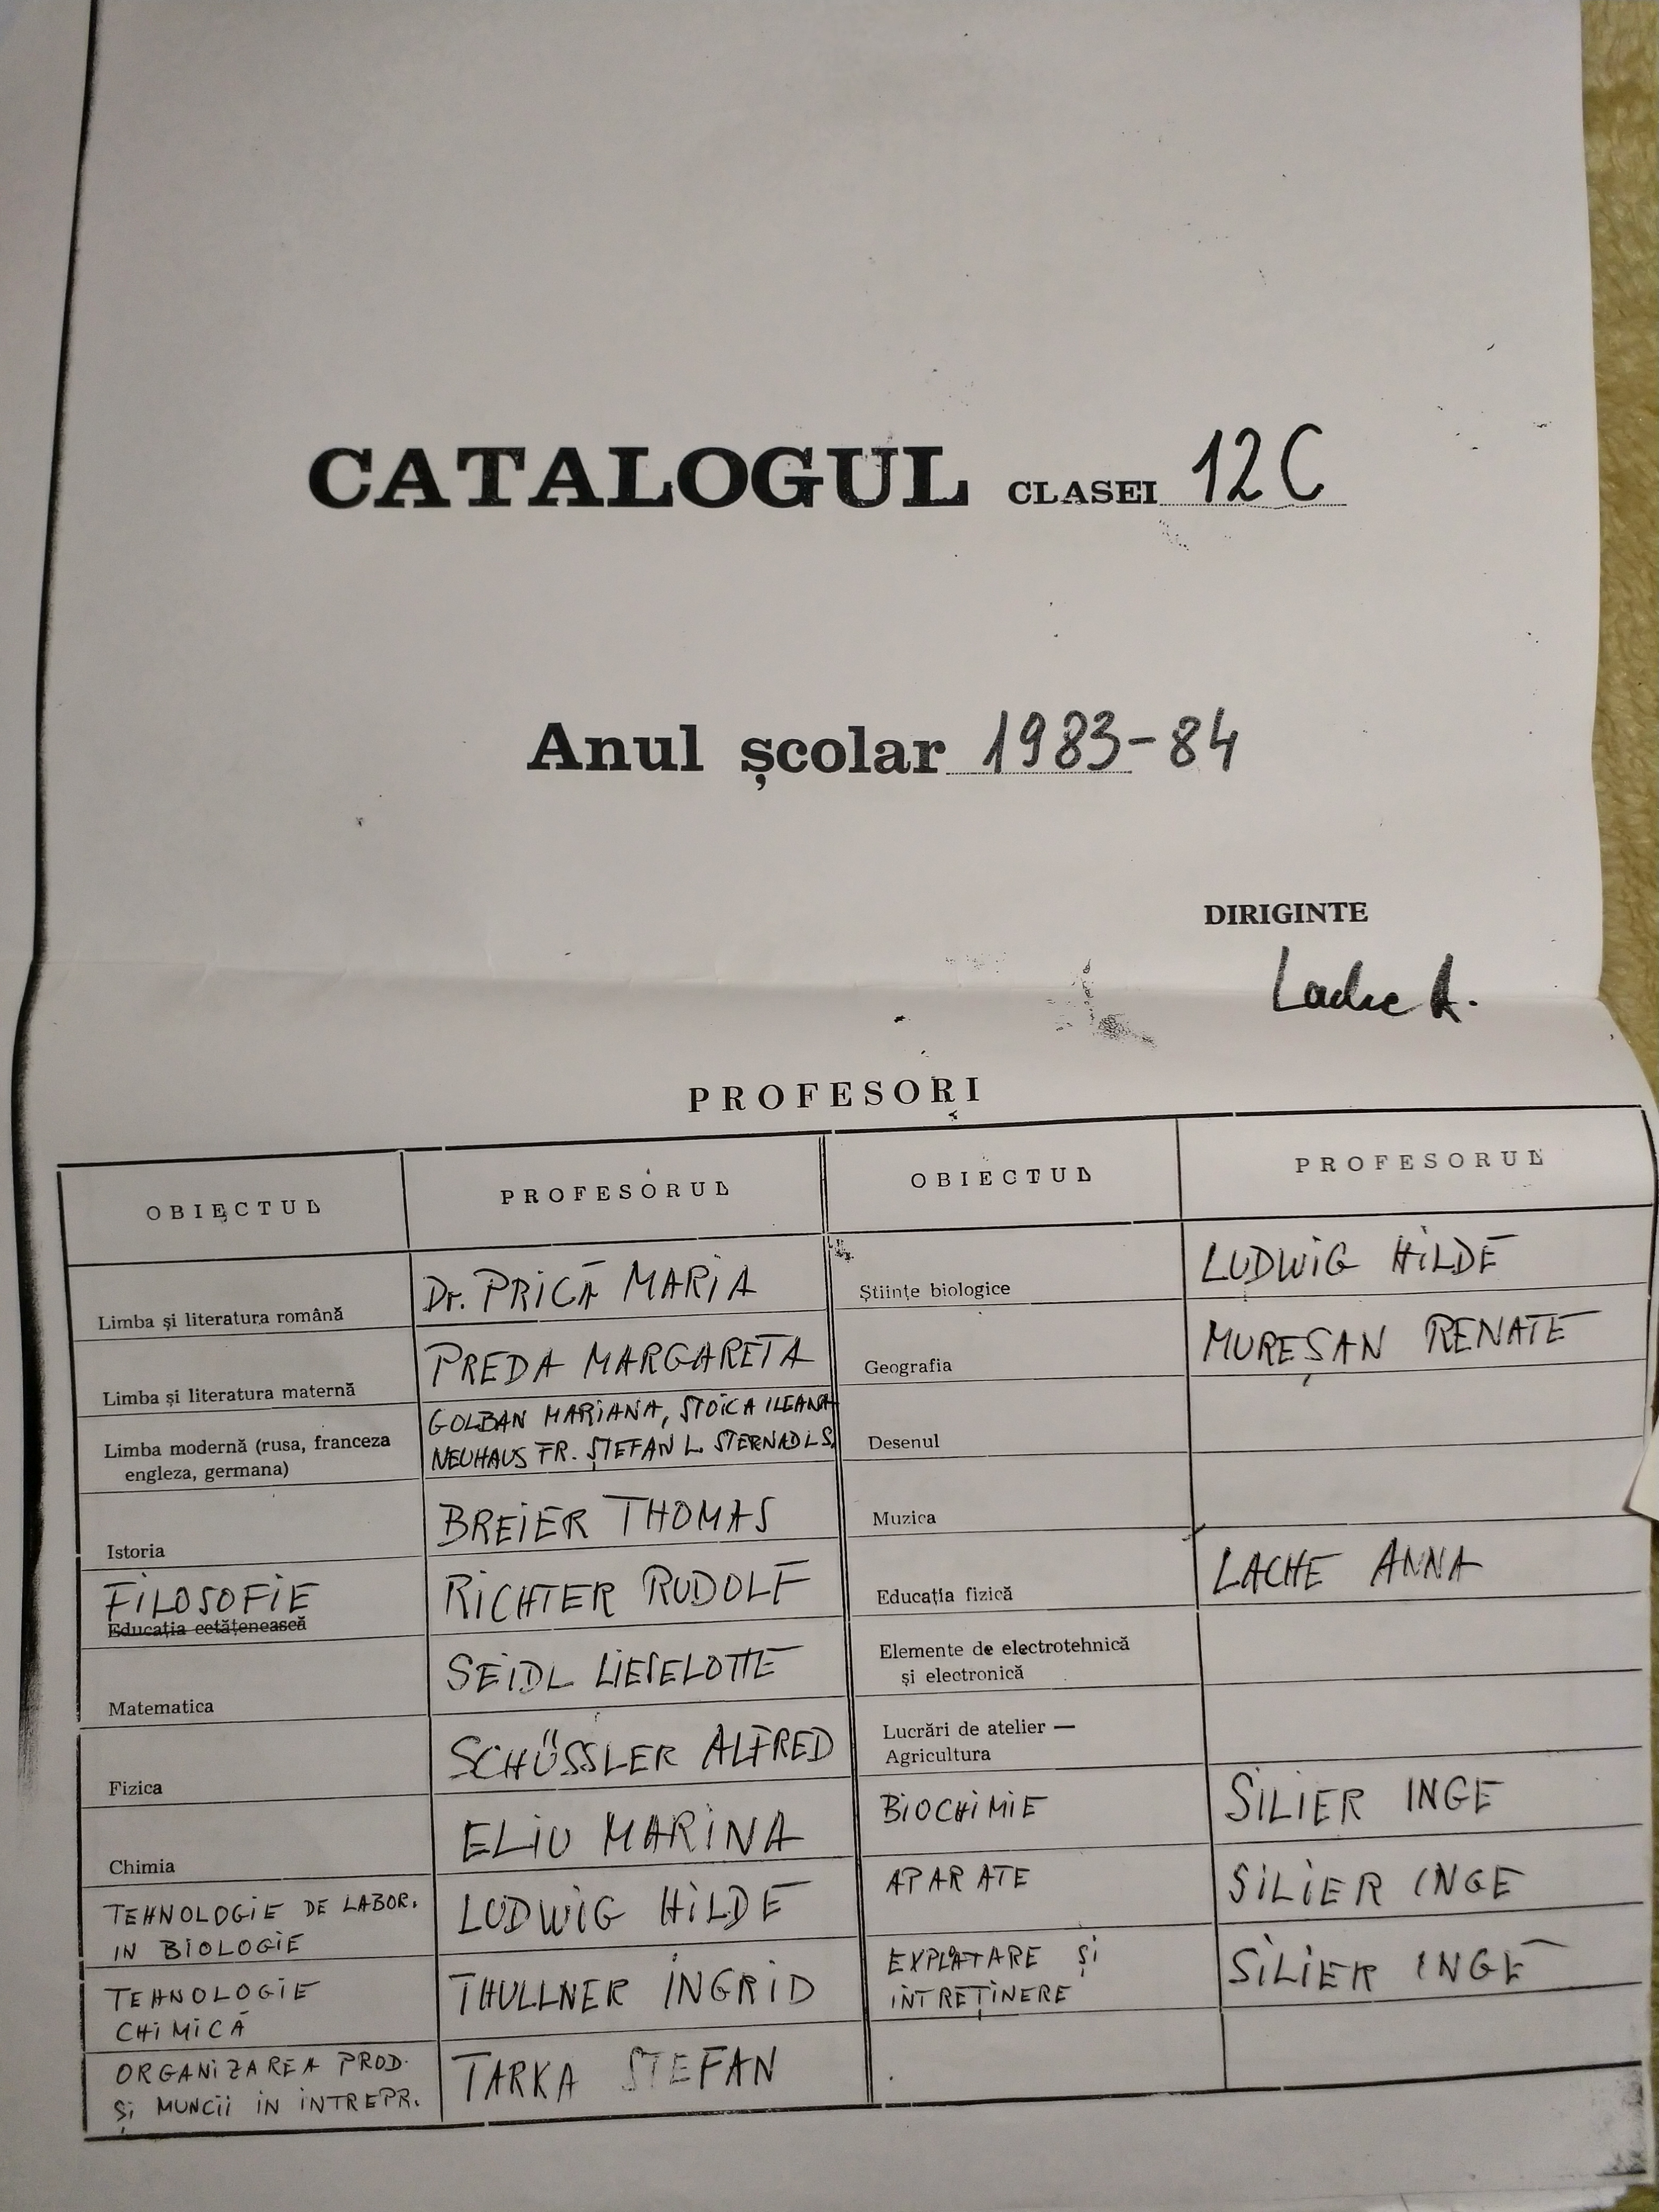 CATALOGUL CLASEI 12C
Anul școlar 1983-84
DIRIGINTE
Lache A.
PROFESORI
OBIECTUL PROFESORUL OBIECTUL PROFESORUL
Limba și literatura română Dr. PRICĂ MARIA
Limba și literatura maternă PREDA MARGARETA
Limba modernă (rusa, franceza
engleza, germana)
GOLBAN MARIANA, STOICA ILEANA
NEUHAUS FR. ȘTEFAN L. STERNADL S.
Istoria BREIER THOMAS
FILOSOFIE RICHTER RUDOLF
Educația cetățenească
Matematica SEIDL LIESELOTTE
Fizica SCHÜSSLER ALFRED
Chimia ELIU MARINA
TEHNOLOGIE DE LABOR.
IN BIOLOGIE
LUDWIG HILDE
TEHNOLOGIE
CHIMICĂ
THULLNER INGRID
ORGANIZAREA PROD.
ȘI MUNCII IN INTREPR.
TARKA STEFAN
Științe biologice LUDWIG HILDE
Geografia MUREȘAN RENATE
Desenul
Muzica
Educația fizică LACHE ANNA
Elemente de electrotehnică
și electronică
Lucrări de atelier —
Agricultura
BIOCHIMIE SILIER INGE
APARATE SILIER INGE
EXPLATARE ȘI
INTREȚINERE
SILIER INGE